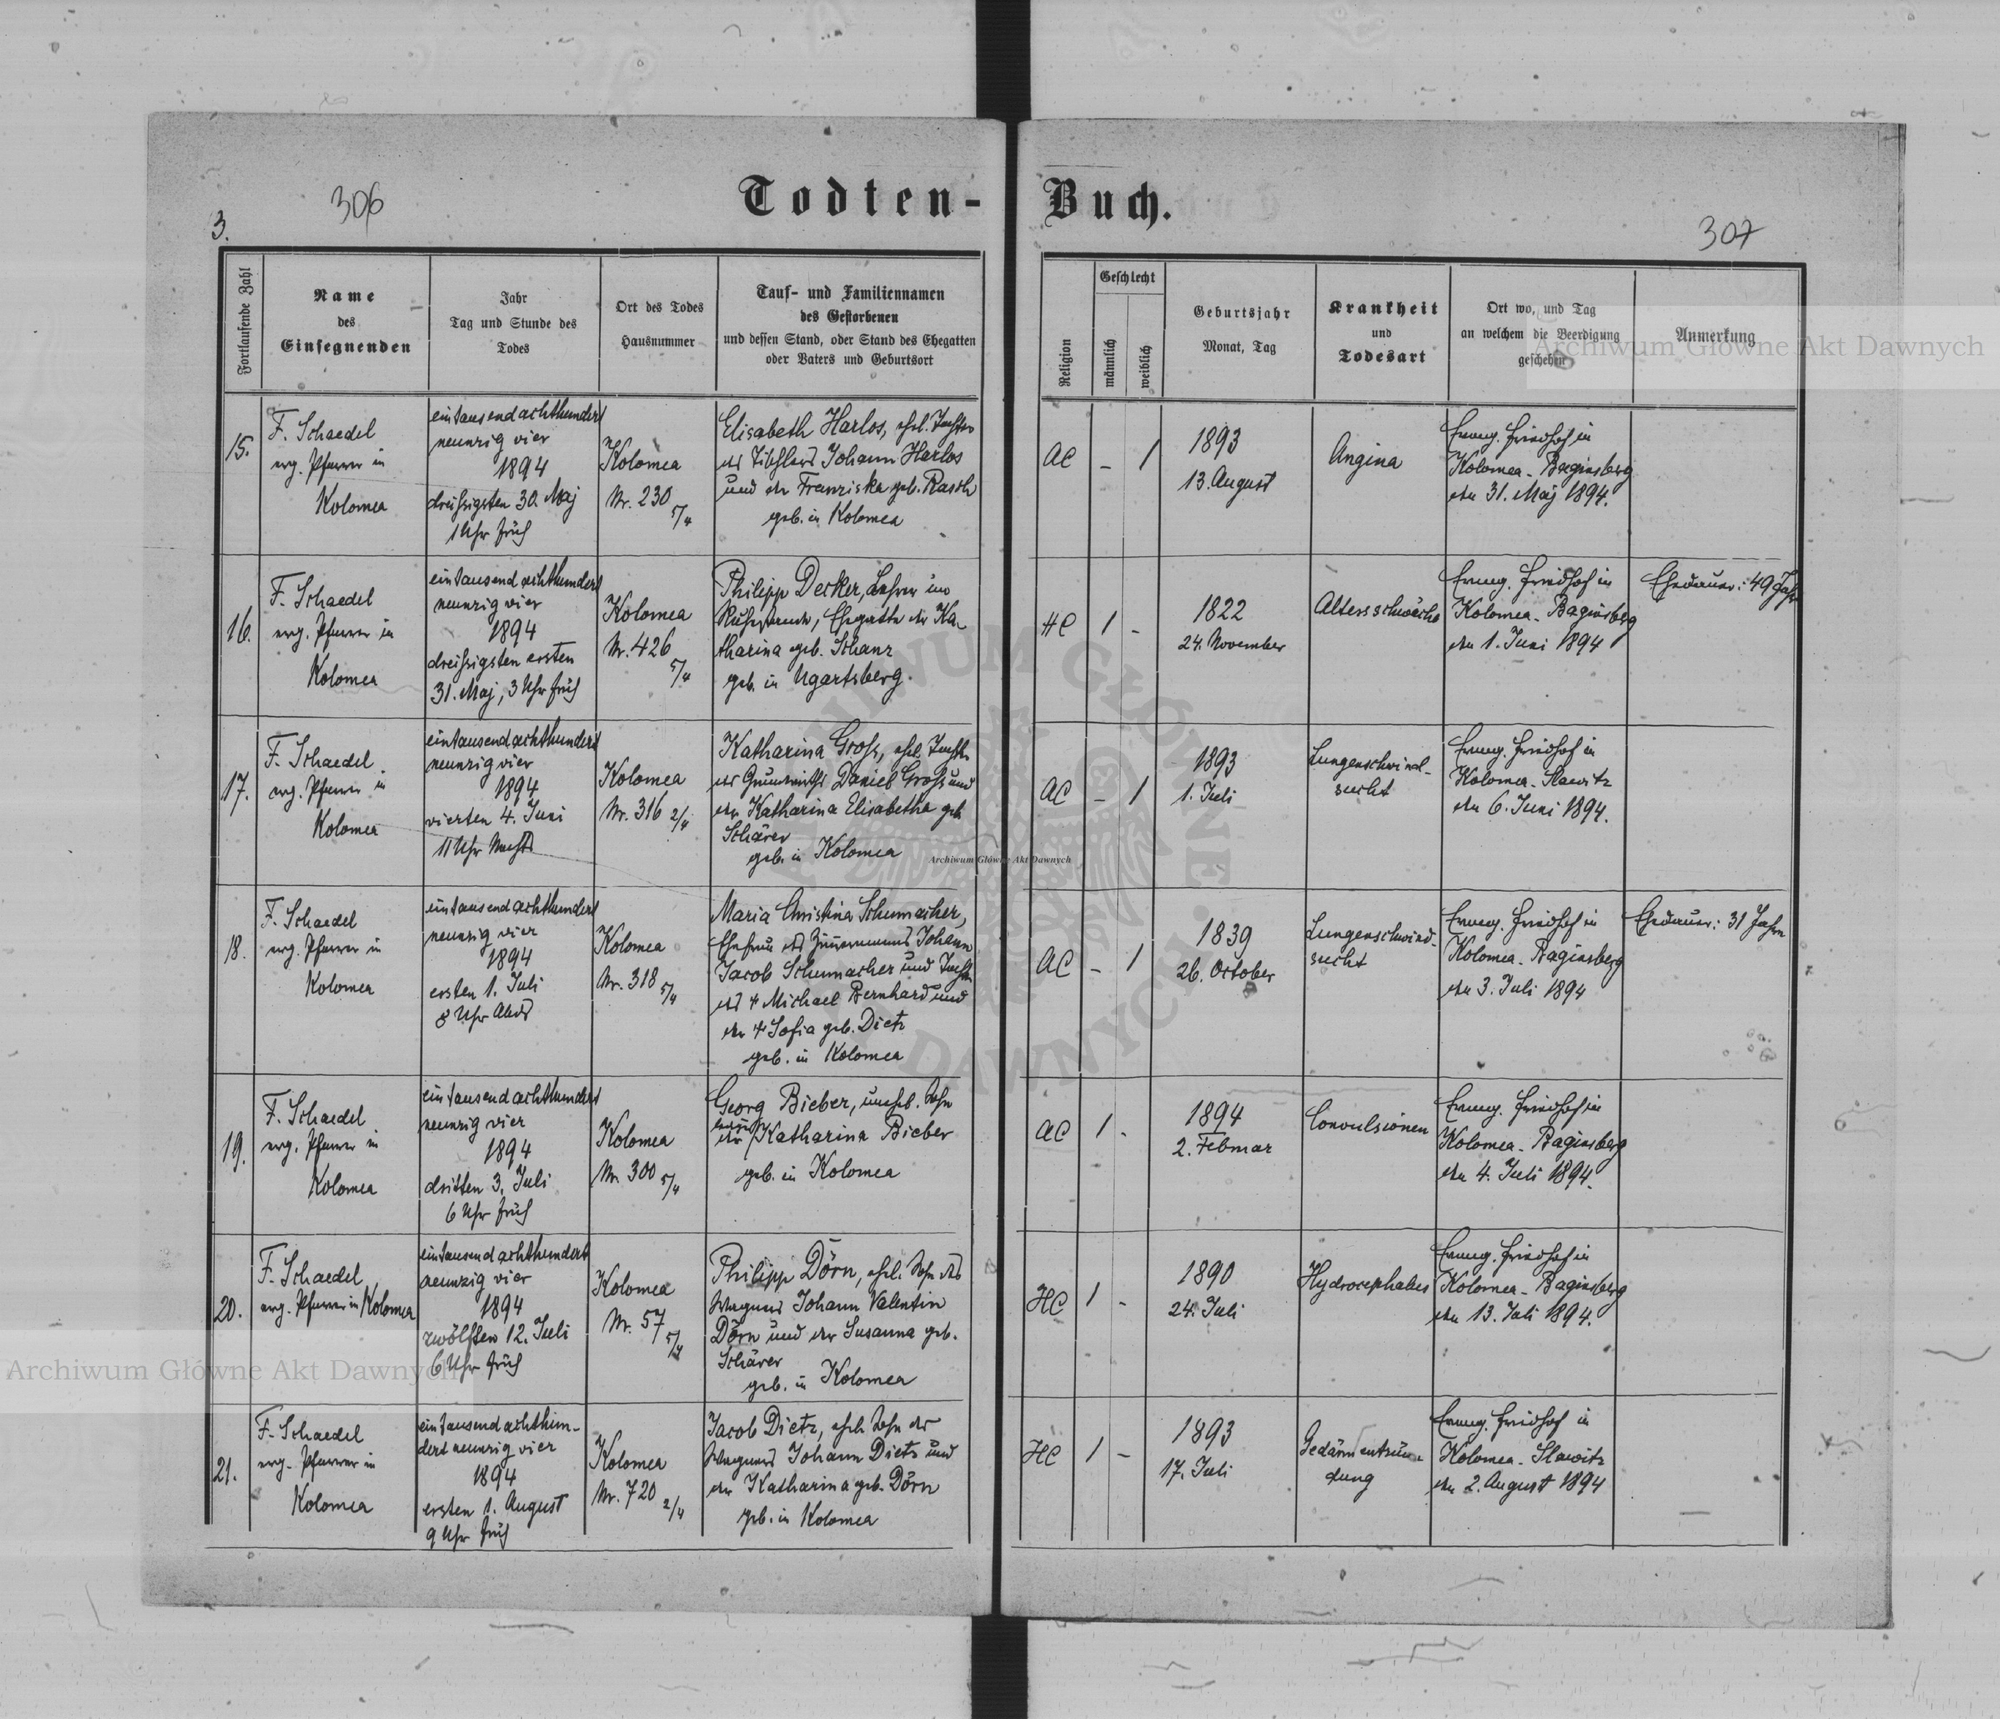 306
3.
Todten-Buch.
307
Fortlaufende Zahl
Name
des
Einsegnenden
Jahr
Tag und Stunde des
Todes
Ort des Todes
Hausnummer
Tauf- und Familiennamen
des Gestorbenen
und dessen Stand, oder Stand des Ehegatten
oder Vaters und Geburtsort
Religion
Geschlecht
männlich
weiblich
Geburtsjahr
Monat, Tag
Krankheit
und
Todesart
Ort wo, und Tag
an welchem die Beerdigung
geschehen
Anmerkung
Archiwum Główne Akt Dawnych
15.
F. Schaedel
evg. Pfarrer in
Kolomea
eintausendachthundert
neunzig vier
1894
dreißigsten 30. Maj
1 Uhr früh
Kolomea
Nr. 230 5/4
Elisabeth Harlos, ehel. Tochter
des Tischlers Johann Harlos
und der Franziska geb. Rasch
geb. in Kolomea
AC
–
1
1893
13. August
Angina
Evang. Friedhof in
Kolomea-Baginsberg
den 31. Maj 1894.
16.
F. Schaedel
evg. Pfarrer in
Kolomea
eintausendachthundert
neunzig vier
1894
dreißigsten ersten
31. Maj, 3 Uhr früh
Kolomea
Nr. 426
5/4
Philipp Decker, Lehrer im
Ruhestande, Ehegatte der Ka-
tharina geb. Schanz
geb. in Ugartsberg.
HC
1
-
1822
24. November
Altersschwäche
Evang. Friedhof in
Kolomea-Baginsberg
den 1. Juni 1894
Ehedauer: 49 Jahr
17.
F. Schaedel
evg. Pfarrer in
Kolomea
eintausendachthundert
neunzig vier
1894
vierten 4. Juni
11 Uhr Nachts
Kolomea
Nr. 316 2/4
Katharina Groß, ehel. Tochter
des Grundwirths Daniel Groß und
der Katharina Elisabetha geb.
Schärer
geb. in Kolomea
AC
–
1
1893
1. Juli
Lungenschwind-
sucht
Evang. Friedhof in
Kolomea-Slawitz
den 6. Juni 1894.
18.
F. Schaedel
evg. Pfarrer in
Kolomea
eintausendachthundert
neunzig vier
1894
ersten 1. Juli
8 Uhr Abds
Kolomea
Nr. 318 5/4
Maria Christina Schumacher,
Ehefrau des Zimermanns Johann
Jacob Schumacher und Tochter
des + Michael Bernhard und
der + Sofia geb. Dietz
geb. in Kolomea
AC
–
1
1839
26. October
Lungenschwind-
sucht
Evang. Friedhof in
Kolomea-Baginsberg
den 3. Juli 1894
Ehedauer: 31 Jahre
19.
F. Schaedel
evg. Pfarrer in
Kolomea
eintausendachthundert
neunzig vier
1894
dritten 3. Juli
6 Uhr früh
Kolomea
Nr. 300 5/4
Georg Bieber, unehel. Sohn
der Katharina Bieber
geb. in Kolomea
AC
1
-
1894
2. Februar
Convulsionen
Evang. Friedhof in
Kolomea-Baginsberg
den 4. Juli 1894.
20.
F. Schaedel
evg. Pfarrer in Kolomea
eintausendachthundert
neunzig vier
1894
zwölften 12. Juli
6 Uhr früh
Kolomea
Nr. 57
5/4
Philipp Dörn, ehel. Sohn des
Wagners Johann Valentin
Dörn und der Susanna geb.
Schärer
geb. in Kolomea
HC
1
-
1890
24. Juli
Hydrocephalus
Evang. Friedhof in
Kolomea-Baginsberg
den 13. Juli 1894.
Archiwum Główne Akt Dawnych
21.
F. Schaedel
evg. Pfarrer in
Kolomea
eintausendachthun-
dert neunzig vier
1894
ersten 1. August
9 Uhr früh
Kolomea
Nr. 720 2/4
Jacob Dietz, ehel. Sohn des
Wagners Johann Dietz und
der Katharina geb. Dörn
geb. in Kolomea
HC
1
–
1893
17. Juli
Gedärmentzün-
dung
Evang. Friedhof in
Kolomea-Slawitz
den 2. August 1894
Archiwum Główne Akt Dawnych